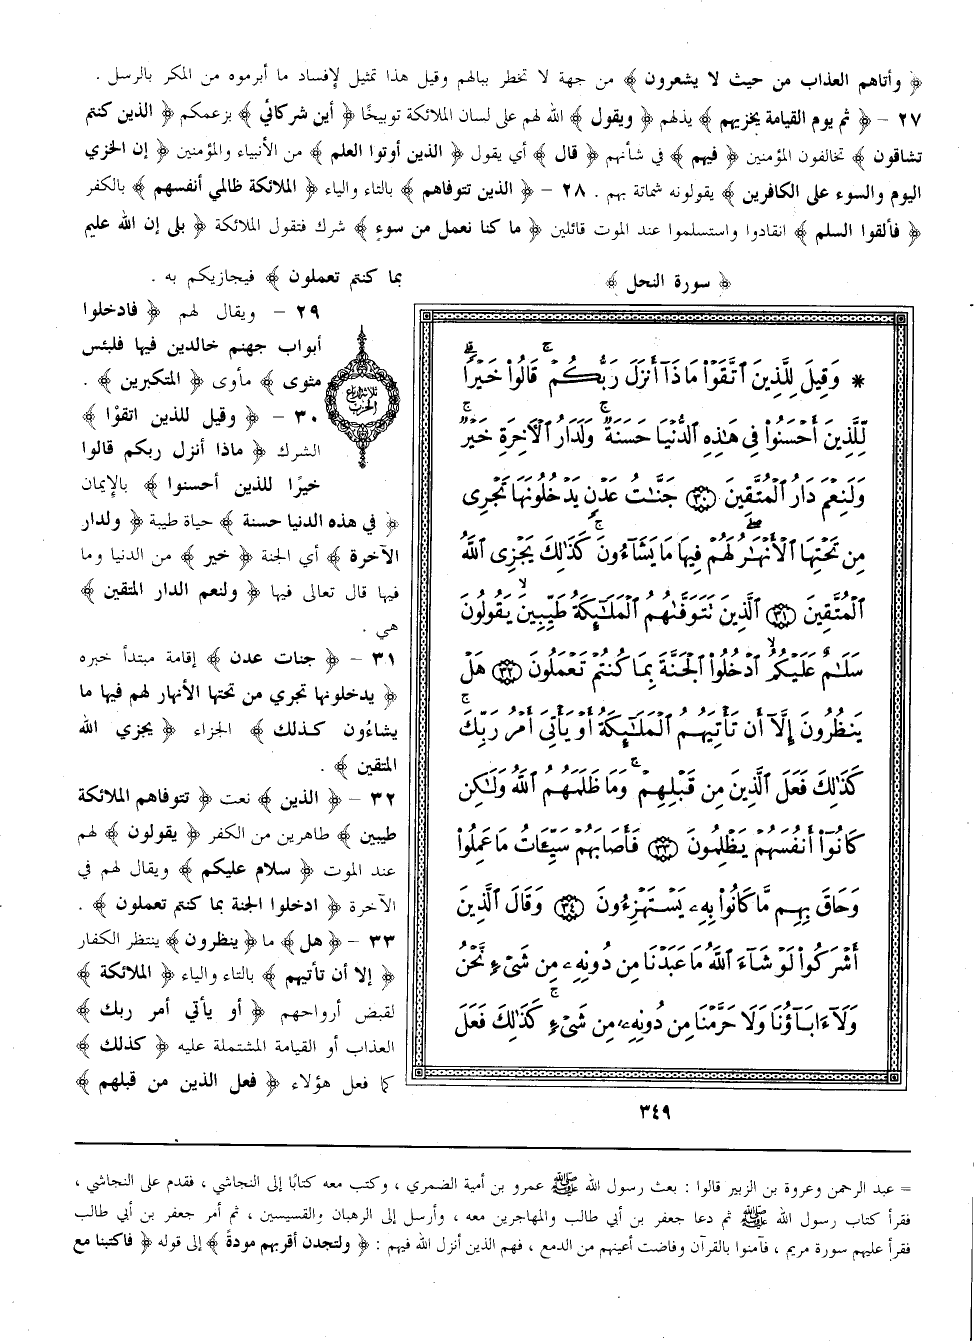 ﴿ وأتاهم العذاب من حيث لا يشعرون ﴾ من جهة لا تخطر ببالهم وقيل هذا تمثيل لإفساد ما أبرموه من المكر بالرسل .
٢٧ – ﴿ ثم يوم القيامة يخزيهم ﴾ يذلهم ﴿ ويقول ﴾ الله لهم على لسان الملائكة توبيخًا ﴿ أين شركائي ﴾ بزعمكم ﴿ الذين كنتم
تشاقون ﴾ تخالفون المؤمنين ﴿ فيهم ﴾ في شأنهم ﴿ قال ﴾ أي يقول ﴿ الذين أوتوا العلم ﴾ من الأنبياء والمؤمنين ﴿ إن الخزي
اليوم والسوء على الكافرين ﴾ يقولونه شماتة بهم . ٢٨ – ﴿ الذين تتوفاهم ﴾ بالتاء والياء ﴿ الملائكة ظالمي أنفسهم ﴾ بالكفر
﴿ فألقوا السلم ﴾ انقادوا واستسلموا عند الموت قائلين ﴿ ما كنا نعمل من سوءٍ ﴾ شرك فتقول الملائكة ﴿ بلى إن الله عليم
بما كنتم تعملون ﴾ فيجازيكم به .
٢٩ – ويقال لهم ﴿ فادخلوا
أبواب جهنم خالدين فيها فلبئس
مثوى ﴾ مأوى ﴿ المتكبرين ﴾ .
٣٠ – ﴿ وقيل للذين اتقوْا ﴾
الشرك ﴿ ماذا أنزل ربكم قالوا
خيرًا للذين أحسنوا ﴾ بالإيمان
﴿ في هذه الدنيا حسنة ﴾ حياة طيبة ﴿ ولدار
الآخرة ﴾ أي الجنة ﴿ خير ﴾ من الدنيا وما
فيها قال تعالى فيها ﴿ ولنعم الدار المتقين ﴾
هي .
٣١ – ﴿ جنات عدن ﴾ إقامة مبتدأ خبره
﴿ يدخلونها تجري من تحتها الأنهار لهم فيها ما
يشاءُون كذلك ﴾ الجزاء ﴿ يجزي الله
المتقين ﴾ .
٣٢ – ﴿ الذين ﴾ نعت ﴿ تتوفاهم الملائكة
طيبين ﴾ طاهرين من الكفر ﴿ يقولون ﴾ لهم
عند الموت ﴿ سلام عليكم ﴾ ويقال لهم في
الآخرة ﴿ ادخلوا الجنة بما كنتم تعملون ﴾ .
٣٣ – ﴿ هل ﴾ ما ﴿ ينظرون ﴾ ينتظر الكفار
﴿ إلا أن تأتيهم ﴾ بالتاء والياء ﴿ الملائكة ﴾
لقبض أرواحهم ﴿ أو يأتي أمر ربك ﴾
العذاب أو القيامة المشتملة عليه ﴿ كذلك ﴾
كما فعل هؤلاء ﴿ فعل الذين من قبلهم ﴾
ثلاثة أرباع
الحزب
﴿ سورة النحل ﴾
* وَقِيلَ لِلَّذِينَ ٱتَّقَوْا۟ مَاذَآ أَنزَلَ رَبُّكُمْ ۚ قَالُوا۟ خَيْرًا ۗ
لِّلَّذِينَ أَحْسَنُوا۟ فِى هَٰذِهِ ٱلدُّنْيَا حَسَنَةٌ ۚ وَلَدَارُ ٱلْآخِرَةِ خَيْرٌ ۚ
وَلَنِعْمَ دَارُ ٱلْمُتَّقِينَ ٣٠ جَنَّٰتُ عَدْنٍ يَدْخُلُونَهَا تَجْرِى
مِن تَحْتِهَا ٱلْأَنْهَٰرُ ۖ لَهُمْ فِيهَا مَا يَشَآءُونَ ۚ كَذَٰلِكَ يَجْزِى ٱللَّهُ
ٱلْمُتَّقِينَ ٣١ ٱلَّذِينَ تَتَوَفَّىٰهُمُ ٱلْمَلَٰٓئِكَةُ طَيِّبِينَ ۙ يَقُولُونَ
سَلَٰمٌ عَلَيْكُمُ ۙ ٱدْخُلُوا۟ ٱلْجَنَّةَ بِمَا كُنتُمْ تَعْمَلُونَ ٣٢ هَلْ
يَنظُرُونَ إِلَّآ أَن تَأْتِيَهُمُ ٱلْمَلَٰٓئِكَةُ أَوْ يَأْتِىَ أَمْرُ رَبِّكَ ۚ
كَذَٰلِكَ فَعَلَ ٱلَّذِينَ مِن قَبْلِهِمْ ۚ وَمَا ظَلَمَهُمُ ٱللَّهُ وَلَٰكِن
كَانُوٓا۟ أَنفُسَهُمْ يَظْلِمُونَ ٣٣ فَأَصَابَهُمْ سَيِّـَٔاتُ مَا عَمِلُوا۟
وَحَاقَ بِهِم مَّا كَانُوا۟ بِهِۦ يَسْتَهْزِءُونَ ٣٤ وَقَالَ ٱلَّذِينَ
أَشْرَكُوا۟ لَوْ شَآءَ ٱللَّهُ مَا عَبَدْنَا مِن دُونِهِۦ مِن شَىْءٍ نَّحْنُ
وَلَآ ءَابَآؤُنَا وَلَا حَرَّمْنَا مِن دُونِهِۦ مِن شَىْءٍ ۚ كَذَٰلِكَ فَعَلَ
٣٤٩
= عبد الرحمن وعروة بن الزبير قالوا : بعث رسول الله ﷺ عمرو بن أمية الضمري ، وكتب معه كتابًا إلى النجاشي ، فقدم على النجاشي ،
فقرأ كتاب رسول الله ﷺ ثم دعا جعفر بن أبي طالب والمهاجرين معه ، وأرسل إلى الرهبان والقسيسين ، ثم أمر جعفر بن أبي طالب
فقرأ عليهم سورة مريم ، فآمنوا بالقرآن وفاضت أعينهم من الدمع ، فهم الذين أنزل الله فيهم : ﴿ ولتجدن أقربهم مودةً ﴾ إلى قوله ﴿ فاكتبنا مع